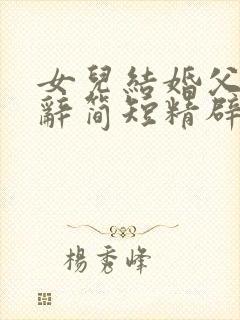 女兒結婚父
辭簡短精辟
楊秀峰